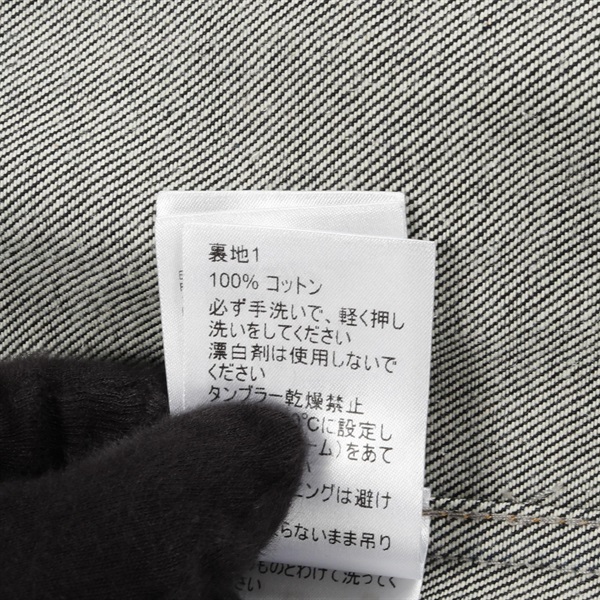 裏地1
100% コットン
必ず手洗いで、軽く押し
洗いをしてください
漂白剤は使用しないで
ください
タンブラー乾燥禁止
℃に設定し
ーム)をあて
い
ニングは避け
らないまま吊り
ものとわけて洗ってく
ださい